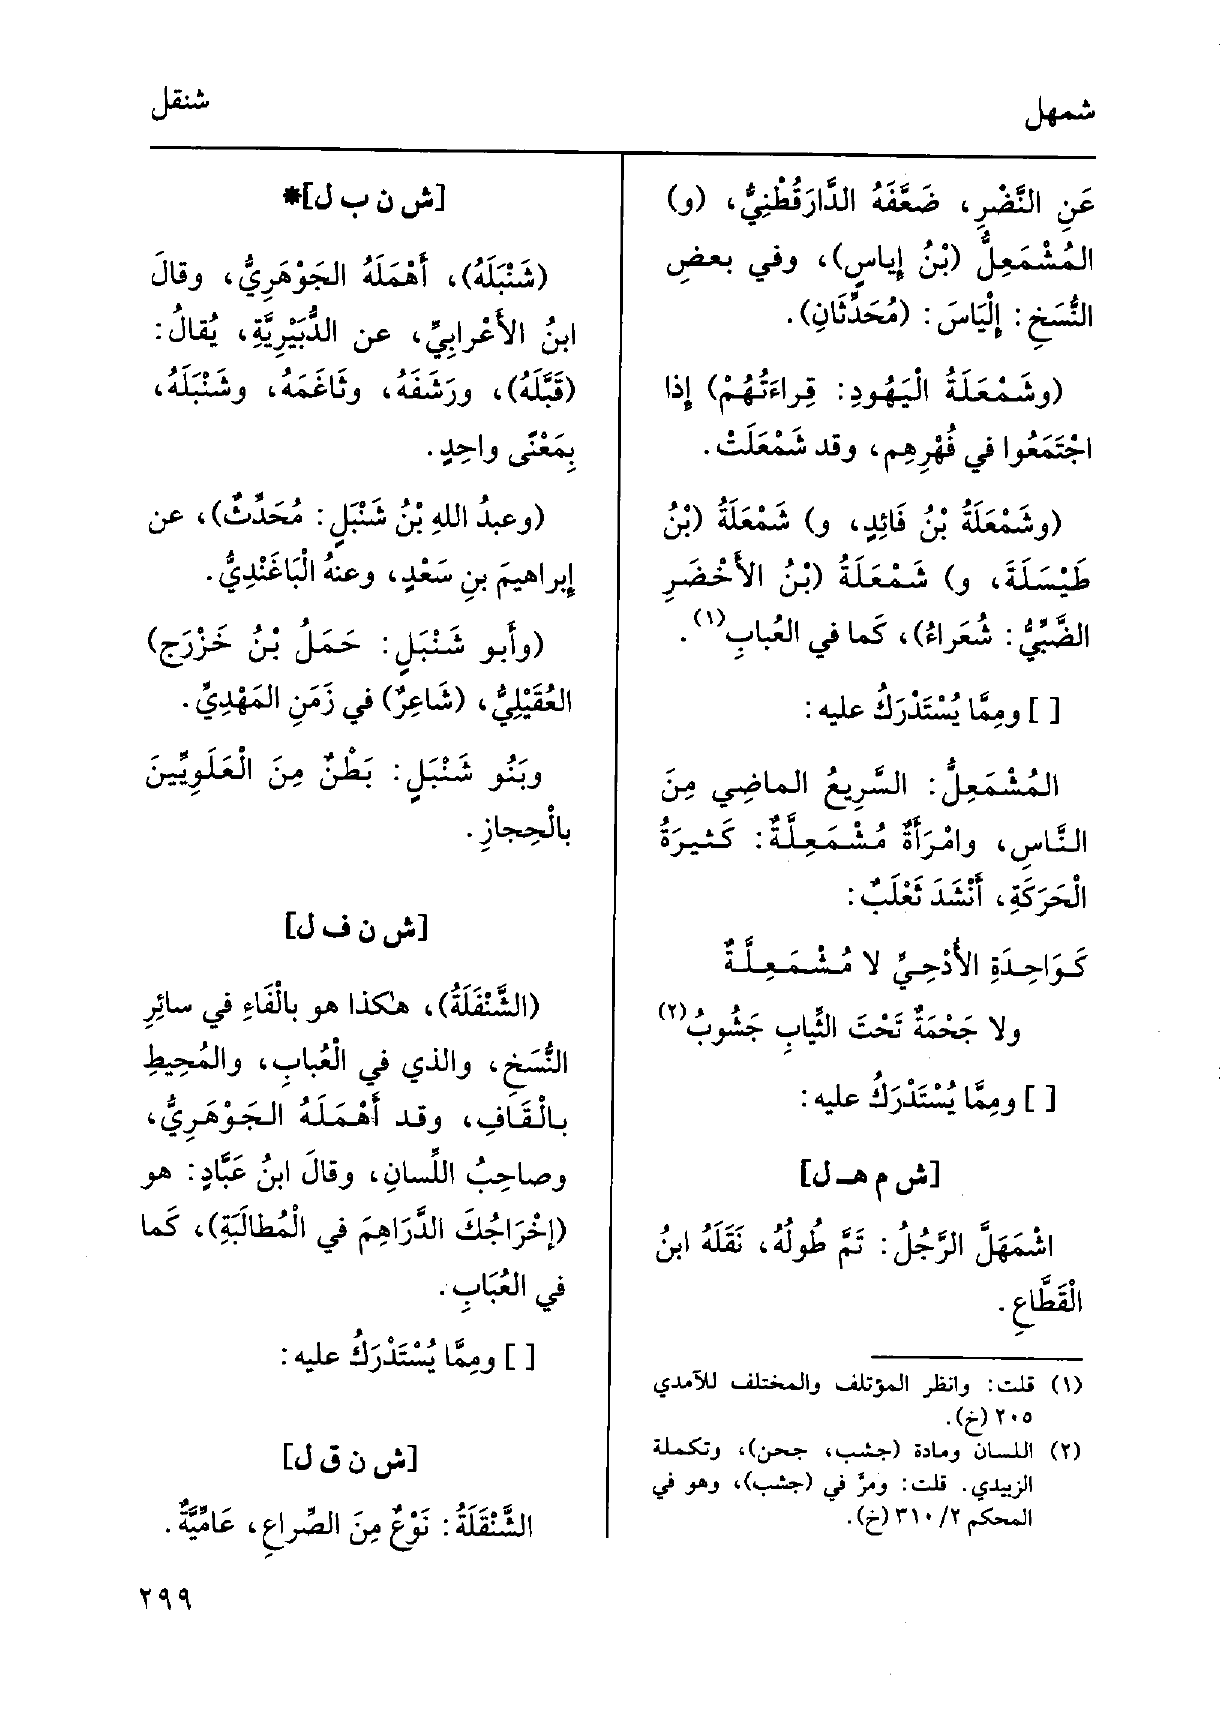 شمهل
شنقل
عَنِ النَّضْرِ، ضَعَّفَهُ الدَّارَقُطْنِيُّ، (و)
المُشْمَعِلُّ (بْنُ إِياسٍ)، وفي بعضِ
النُّسَخِ: إِلْيَاسَ: (مُحَدِّثَانِ).
(وشَمْعَلَةُ الْيَهُودِ: قِراءَتُهُمْ) إِذا
اجْتَمَعُوا في فُهْرِهِم، وقد شَمْعَلَتْ.
(وشَمْعَلَةُ بْنُ فَائِدٍ، و) شَمْعَلَةُ (بْنُ
طَيْسَلَةَ، و) شَمْعَلَةُ (بْنُ الأَخْضَرِ
الضَّبِّيُّ: شُعَراءُ)، كَما في العُبابِ(١).
[ ] ومِمَّا يُسْتَدْرَكُ عليه:
المُشْمَعِلُّ: السَّرِيعُ الماضِي مِنَ
النَّاسِ، وامْرَأَةٌ مُشْمَعِلَّةٌ: كَثيرَةُ
الْحَرَكَةِ، أَنْشَدَ ثَعْلَبٌ:
كَوَاحِدَةِ الأُدْحِيِّ لا مُشْمَعِلَّةٌ
ولا جَحْمَةٌ تَحْتَ الثِّيابِ جَشُوبُ(٢)
[ ] ومِمَّا يُسْتَدْرَكُ عليه:
[ش م هـ ل]
اشْمَهَلَّ الرَّجُلُ: تَمَّ طُولُهُ، نَقَلَهُ ابنُ
الْقَطَّاعِ.
(١) قلت: وانظر المؤتلف والمختلف للآمدي
٢٠٥ (خ).
(٢) اللسان ومادة (جشب، جحن)، وتكملة
الزبيدي. قلت: ومرَّ في (جشب)، وهو في
المحكم ٣١٠/٢ (خ).
[ش ن ب ل]*
(شَنْبَلَهُ)، أَهْمَلَهُ الجَوْهَرِيُّ، وقالَ
ابنُ الأَعْرابِيِّ، عن الدُّبَيْرِيَّةِ، يُقالُ:
(قَبَّلَهُ)، ورَشَفَهُ، وثَاغَمَهُ، وشَنْبَلَهُ،
بِمَعْنًى واحِدٍ.
(وعبدُ اللهِ بْنُ شَنْبَلٍ: مُحَدِّثٌ)، عن
إِبراهيمَ بنِ سَعْدٍ، وعنهُ الْبَاغَنْدِيُّ.
(وأَبو شَنْبَلٍ: حَمَلُ بْنُ خَزْرَج)
العُقَيْلِيُّ، (شَاعِرٌ) في زَمَنِ المَهْدِيِّ.
وبَنُو شَنْبَلٍ: بَطْنٌ مِنَ الْعَلَوِيِّينَ
بالْحِجازِ.
[ش ن ف ل]
(الشَّنْفَلَةُ)، هٰكذا هو بالْفَاءِ في سائِرِ
النُّسَخِ، والذي في الْعُبابِ، والمُحِيطِ
بالْقَافِ، وقد أَهْمَلَهُ الجَوْهَرِيُّ،
وصاحِبُ اللِّسانِ، وقالَ ابنُ عَبَّادٍ: هو
(إِخْرَاجُكَ الدَّرَاهِمَ في الْمُطالَبَةِ)، كَما
في العُبَابِ.
[ ] ومِمَّا يُسْتَدْرَكُ عليه:
[ش ن ق ل]
الشَّنْقَلَةُ: نَوْعٌ مِنَ الصِّراعِ، عَامِّيَّةٌ.
٢٩٩